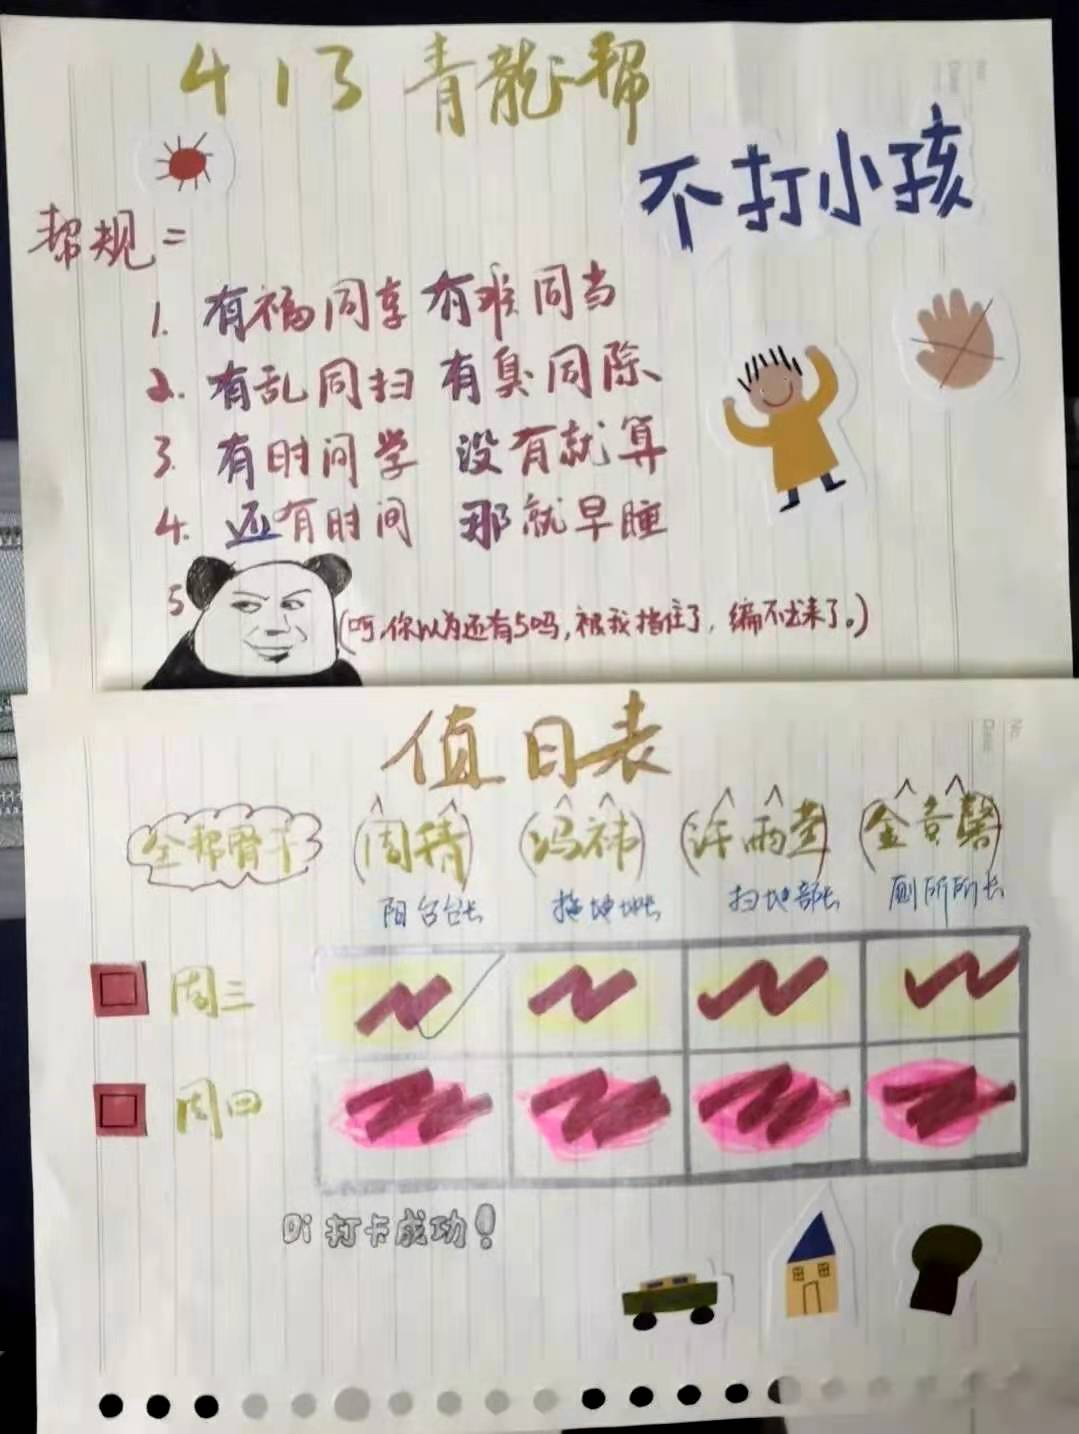 413 青龍帮
不打小孩
帮规=
1. 有福同享 有难同当
2. 有乱同扫 有臭同除
3. 有时间学 没有就算
4. 还有时间 那就早睡
5 (呵,你以为还有5吗,被我挡住了,编不出来了。)
值日表
全帮骨干 (周精) (冯祎) (许雨萱) (金音馨)
阳台台长 拖地地长 扫地部长 厕所所长
周三
周四
Di 打卡成功!
No.
Date